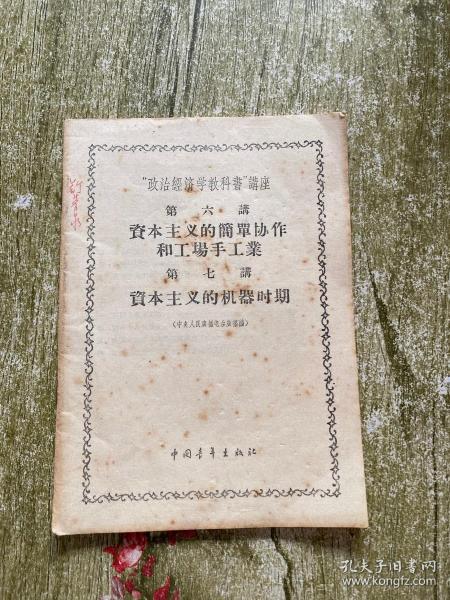 "政治經济学教科書"講座
第六講
資本主义的簡單协作
和工場手工業
第七講
資本主义的机器时期
(中央人民廣播电台廣播稿)
中国青年出版社
孔夫子旧书网
www.kongfz.com